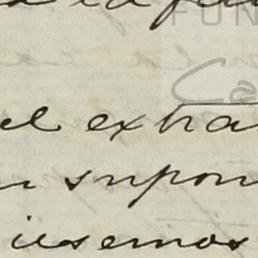 FUN
Ca
el extra
n supon
iesemos